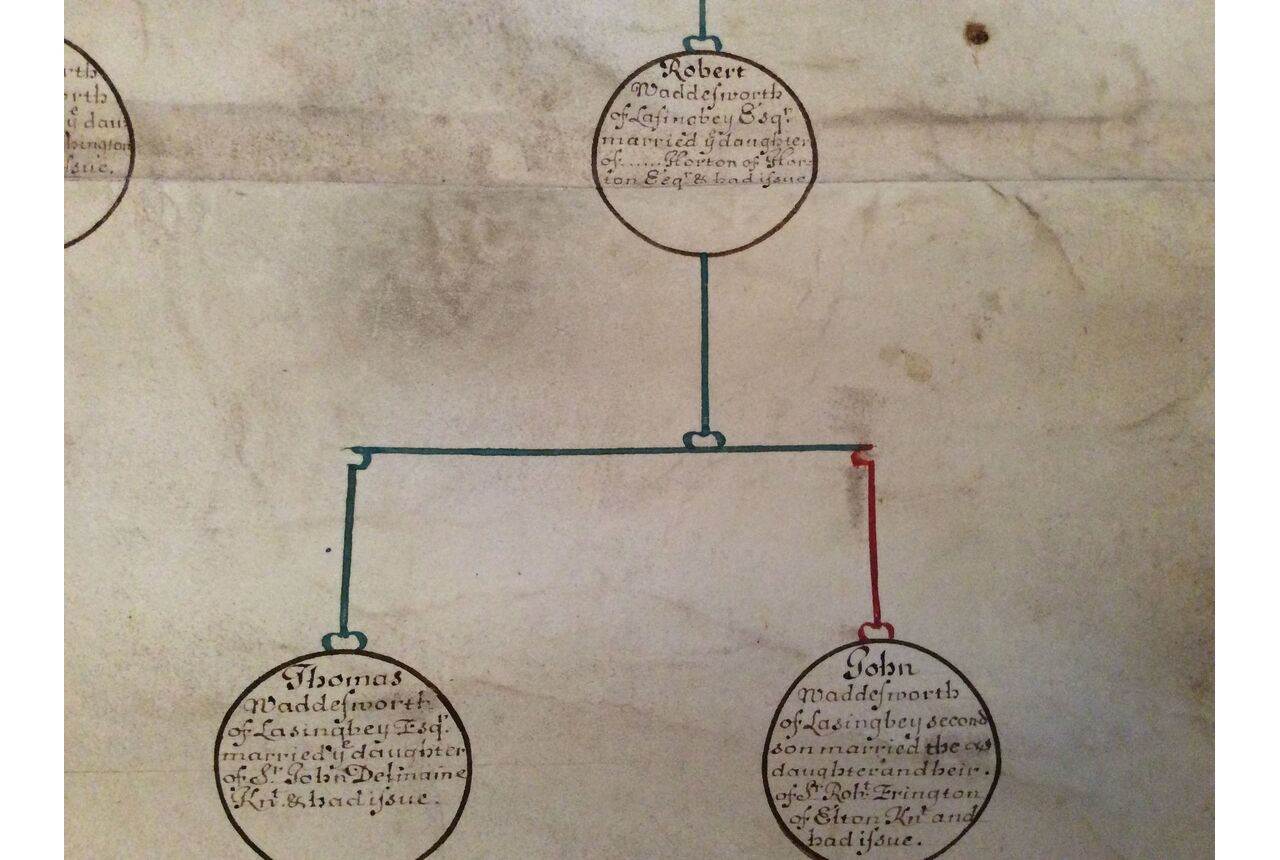 rth
orth
yͤ dau
hington
ifsue.
Robert
Waddesworth
of Lasingbey Esqʳ.
married yͤ daughter
of...... Horton of Hor-
ton Esqʳ & had ifsue
Thomas
Waddesworth
of Lasingbey Esqʳ.
married yͤ daughter
of Sʳ. John
Knᵗ. & had ifsue.
John
Waddesworth
of Lasingbey second
son married the
daughter and heir.
of Sʳ. Robᵗ. Erington
of Elton Knᵗ and
had ifsue.